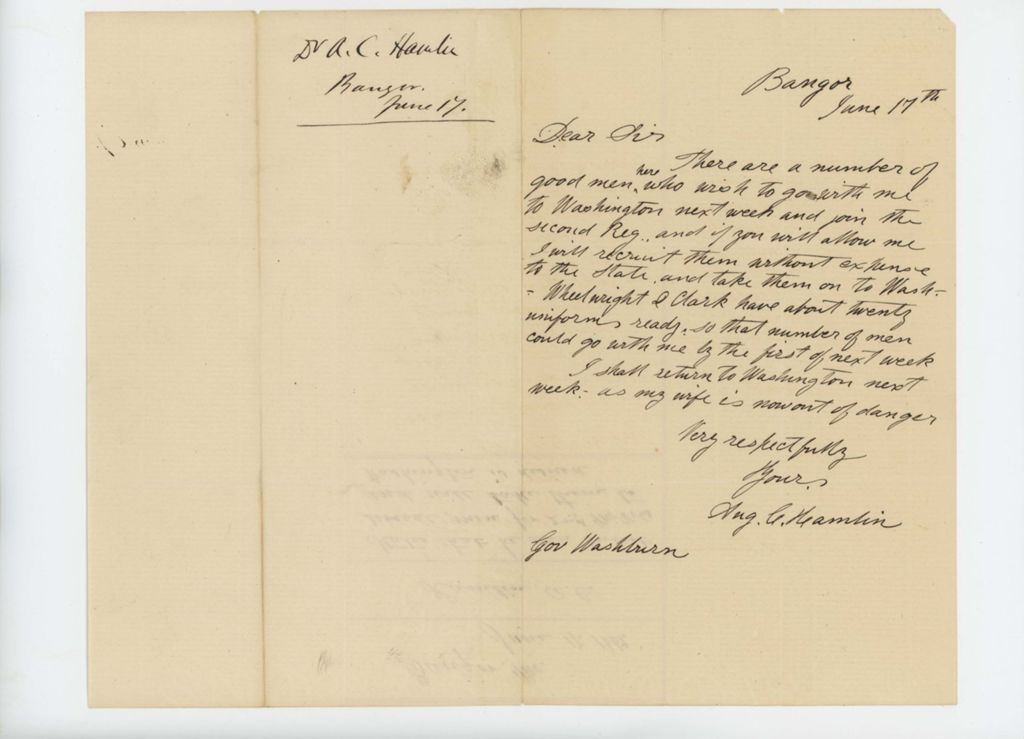 Dr A. C. Hamlin
Bangor.
June 17.
Bangor
June 17th
Dear Sir
There are a number of
good men, here who wish to go with me
to Washington next week and join the
second Reg., and if you will allow me
I will recruit them without expense
to the State, and take them on to Wash-
- Wheelwright & Clark have about twenty
uniforms ready, so that number of men
could go with me by the first of next week
I shall return to Washington next
week - as my wife is now out of danger
Very respectfully
Yours
Aug. C. Hamlin
Gov Washburn